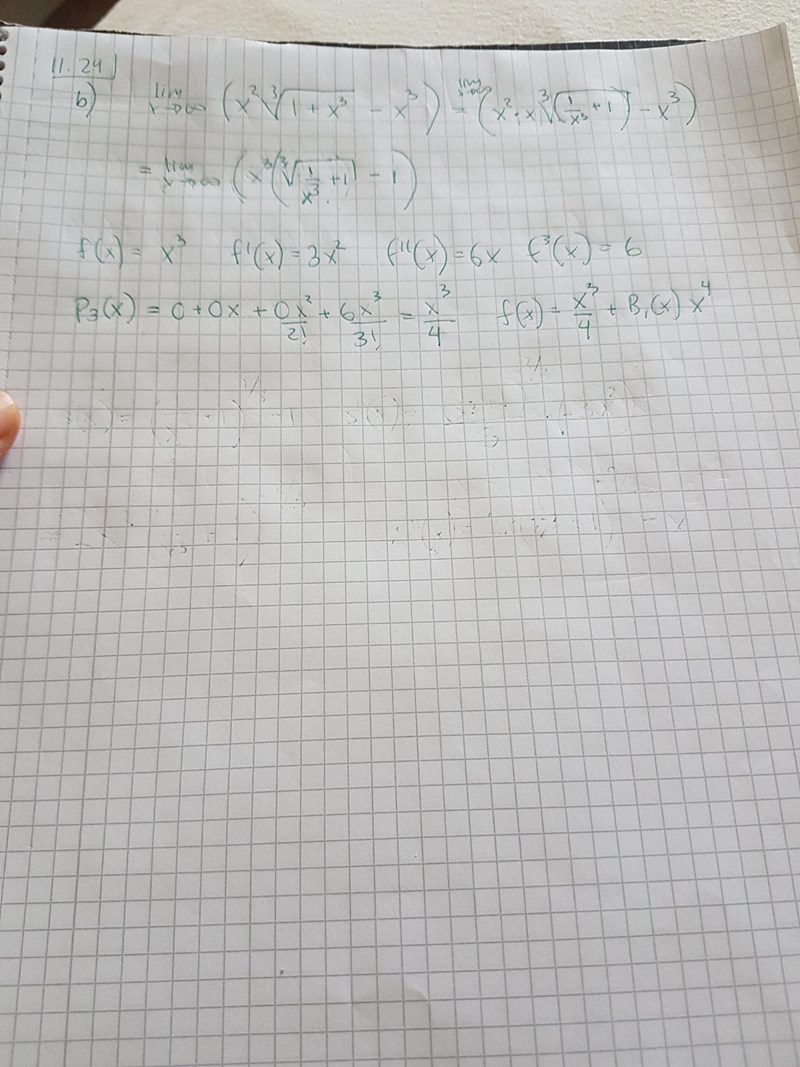 11.24
b) lim x→∞ (x² ∛(1 + x³) - x³) = lim x→∞ (x² · x ∛(1/x³ + 1) - x³)
= lim x→∞ (x³(∛(1/x³ + 1) - 1)
f(x) = x³ f'(x) = 3x² f''(x) = 6x f³(x) = 6
P₃(x) = 0 + 0x + 0x²/2! + 6x³/3! = x³/4 f(x) = x³/4 + B₁(x) x⁴